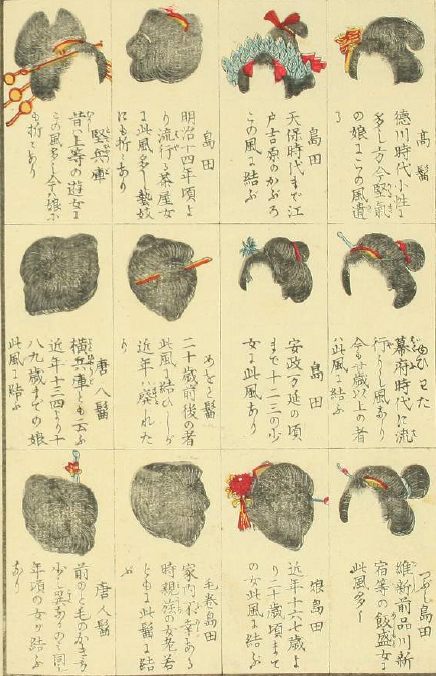 高髷
徳川時代小性に
多し方今堅氣
の娘にこの風遺
る
島田
天保時代まで江
戸吉原のかぶろ
この風に結ぶ
島田
明治十四年頃よ
り流行る茶屋女
に此風多し藝妓
にも折々あり
堅兵庫
昔ハ上等の遊女に
この風多く今ハ娘に
も折々あり
わた
幕府時代に流
行せし風なり
今も廿歳以上の者
ハ此風に結ぶ
島田
安政万延の頃
まで十二三の少
女に此風あり
めをと髷
二十歳前後の者
此風に結ひしが
近年ハ廢れた
り
唐人髷
横兵庫とも云ふ
近年十三四より十
八九歳までの娘
此風に結ぶ
つぶし島田
維新前品川新
宿等の飯盛女に
此風多し
娘島田
近年十六七歳よ
り二十歳頃まで
の女此風に結ぶ
毛巻島田
家内に不幸ある
時親族の女老若
ともに此髷に結
ぶ
唐人髷
前のと毛のかき方
少し異なるのミ同じ
年頃の女の結ぶ
なり